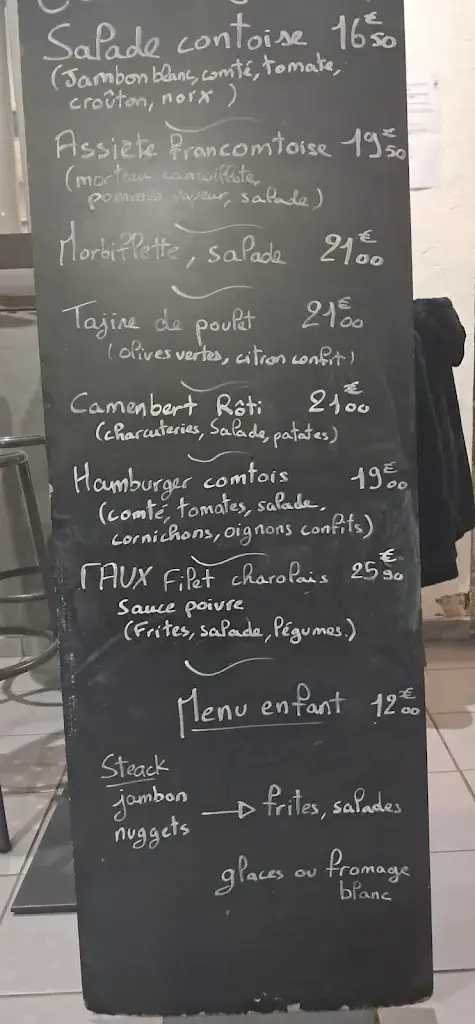 Salade contoise 16€50
(Jambon blanc, comté, tomate,
croûton, noix)
Assiete francomtoise 19€50
(morteau cancoillote,
pommes vapeur, salade)
Morbiflette, salade 21€00
Tajine de poulet 21€00
(olives vertes, citron confit)
Camenbert Rôti 21€00
(charcuteries, Salade, patates)
Hamburger comtois 19€00
(comté, tomates, salade,
cornichons, oignons confits)
FAUX Filet charolais 25€90
Sauce poivre
(Frites, salade, légumes)
Menu enfant 12€00
Steack
jambon → frites, salades
nuggets
glaces ou fromage
blanc